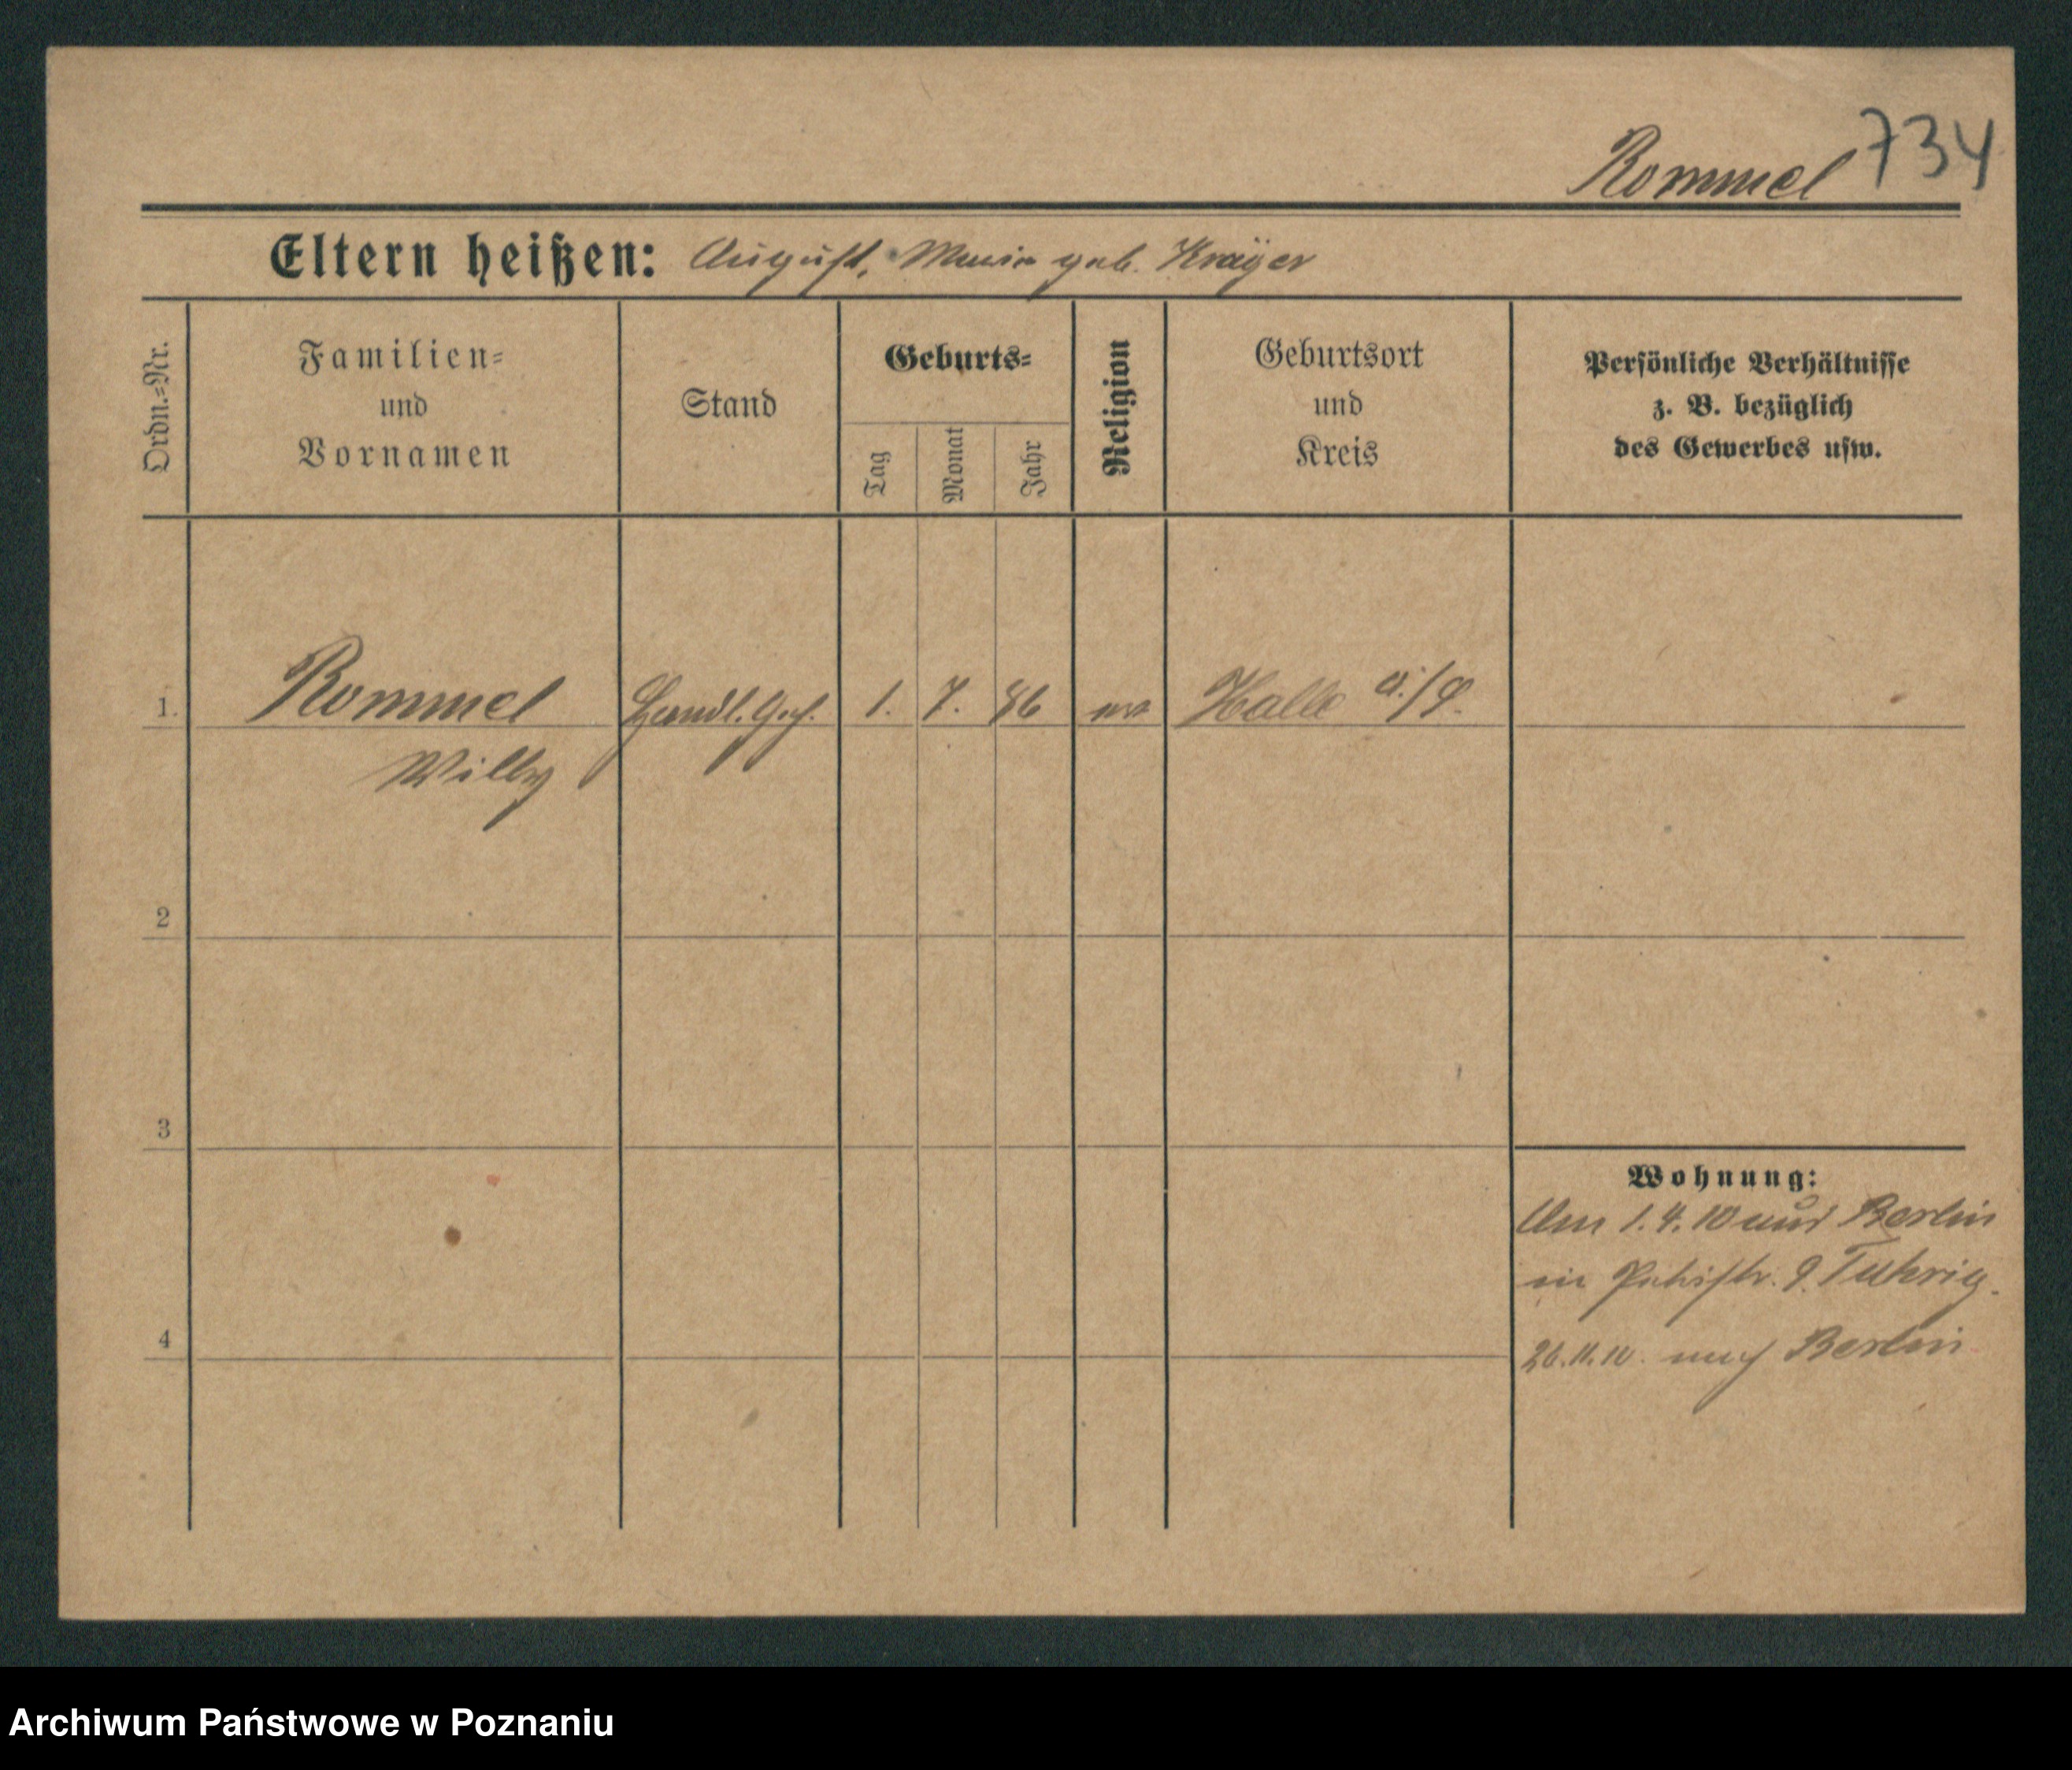 Rommel 734
Eltern heißen: August, Maria geb. Kräger
Ordn.-Nr.
Familien-
und
Vornamen
Stand
Geburts-
Tag
Monat
Jahr
Religion
Geburtsort
und
Kreis
Persönliche Verhältnisse
z. B. bezüglich
des Gewerbes usw.
1. Rommel Handl. Geh. 1. 7. 86 ev Halle a./S.
Willy
2
3
4
Wohnung:
Am 1.4.10 aus Berlin
in 9.
26.11.10. nach Berlin
Archiwum Państwowe w Poznaniu